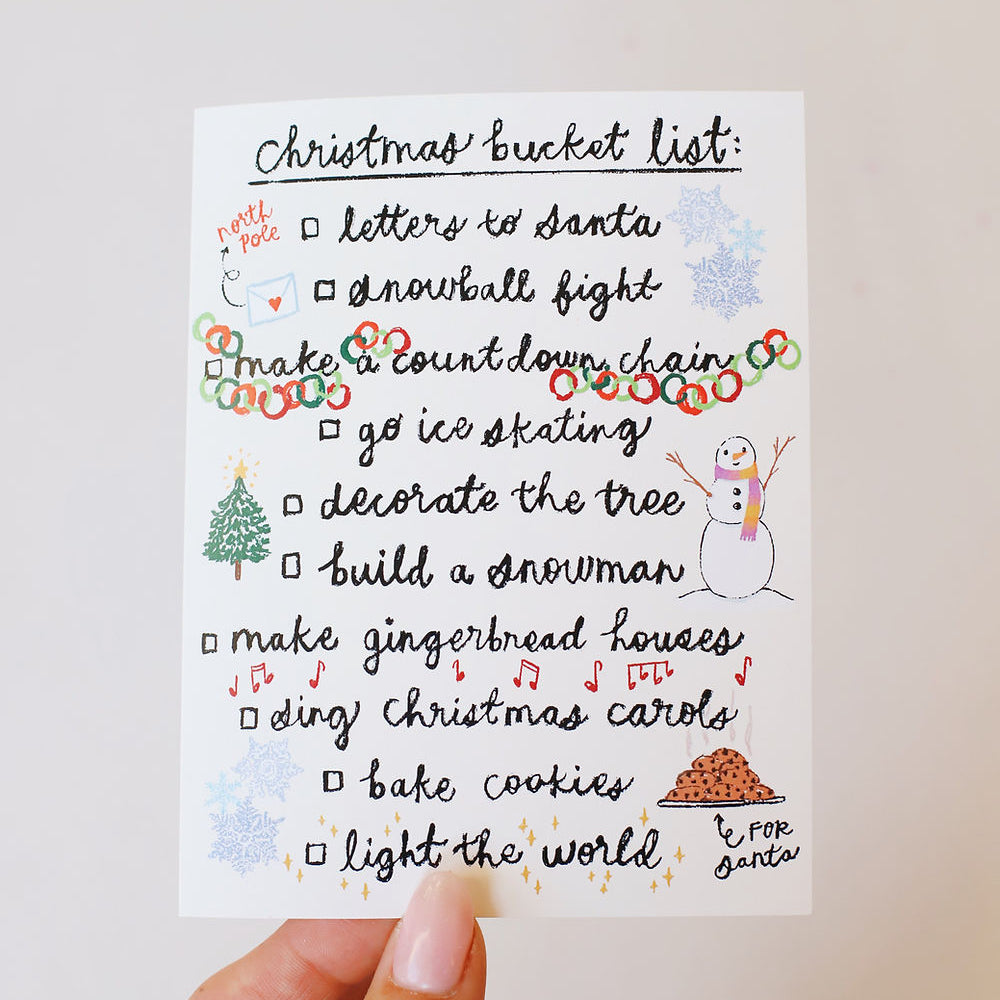 christmas bucket list:
north
pole
letters to santa
snowball fight
make a countdown chain
go ice skating
decorate the tree
build a snowman
make gingerbread houses
sing christmas carols
bake cookies
FOR
santa
light the world